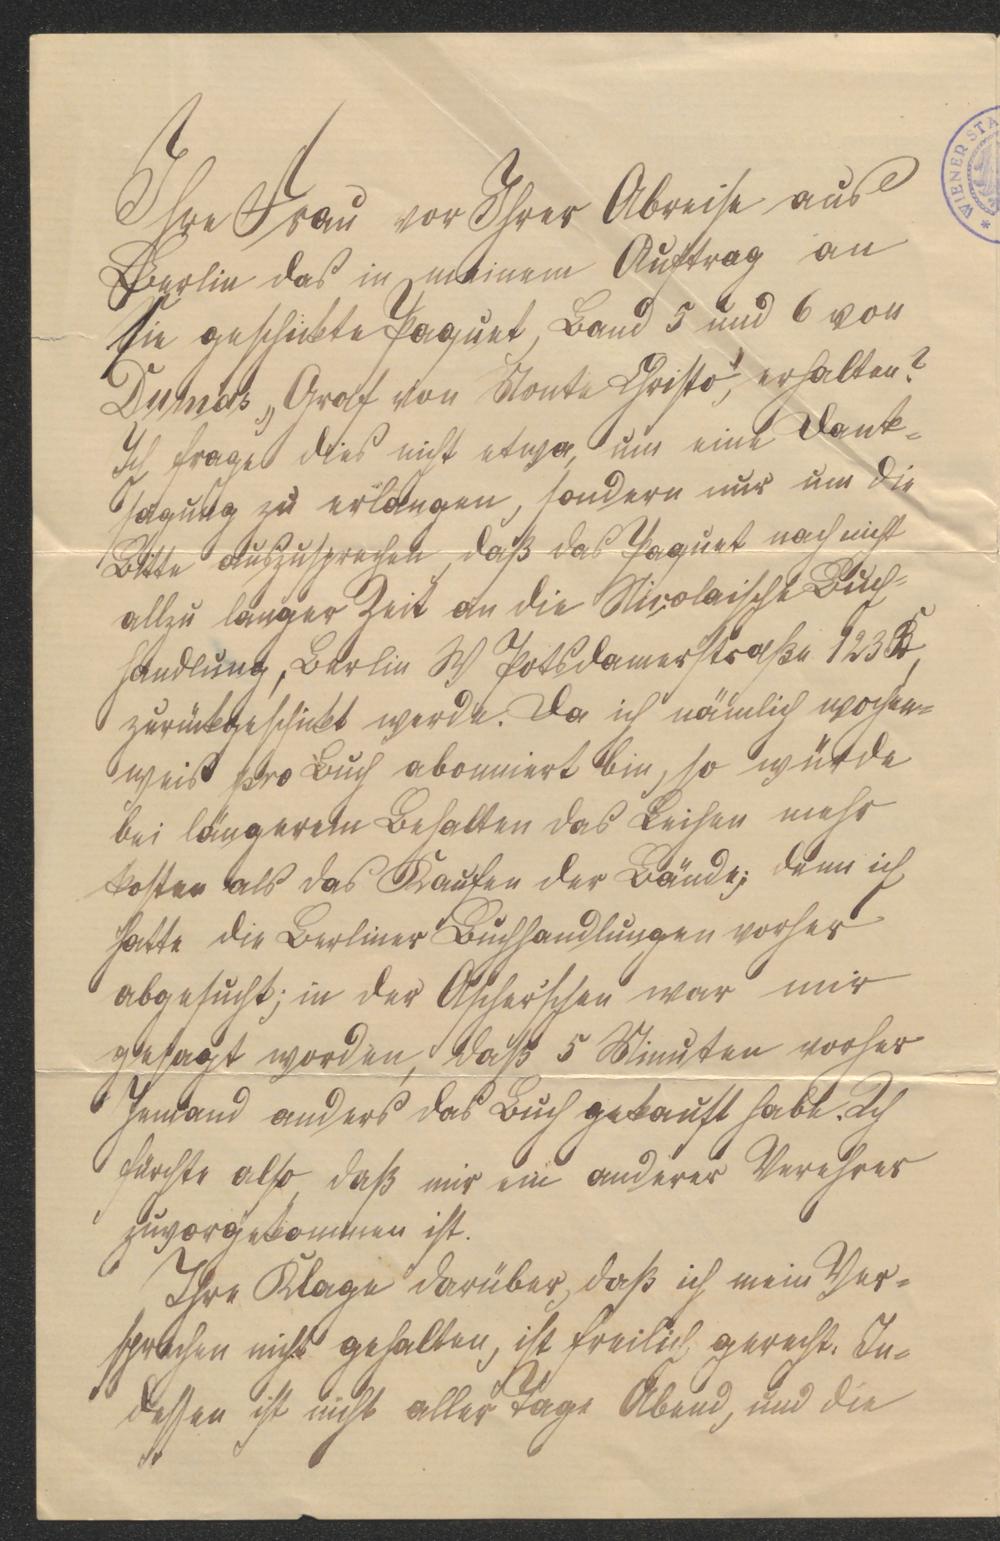 Ihre Frau vor Ihrer Abreise aus
Berlin das in meinem Auftrag an
Sie geschickte Paquet, Band 5 und 6 von
Dumas „Graf von Monte Christo“, erhalten?
Ich frage dies nicht etwa, um eine Dank-
sagung zu erlangen, sondern nur um die
Bitte auszusprechen, daß das Paquet nach nicht
allzu langer Zeit an die Nicolaische Buch-
handlung, Berlin W Potsdamerstraße 123
zurückgeschickt werde. Da ich nämlich wochen-
weis pro Buch abonniert bin, so würde
bei längerem Behalten das Leihen mehr
kosten als das Kaufen der Bände; denn ich
hatte die Berliner Buchhandlungen vorher
abgesucht; in der Ascher'schen war mir
gesagt worden, daß 5 Minuten vorher
Jemand anders das Buch gekauft habe. Ich
fürchte also, daß mir ein anderer Verehrer
zuvorgekommen ist.
Ihre Klage darüber, daß ich mein Ver-
sprechen nicht gehalten, ist freilich gerecht. In-
dessen ist nicht aller Tage Abend, und die
WIENER STA